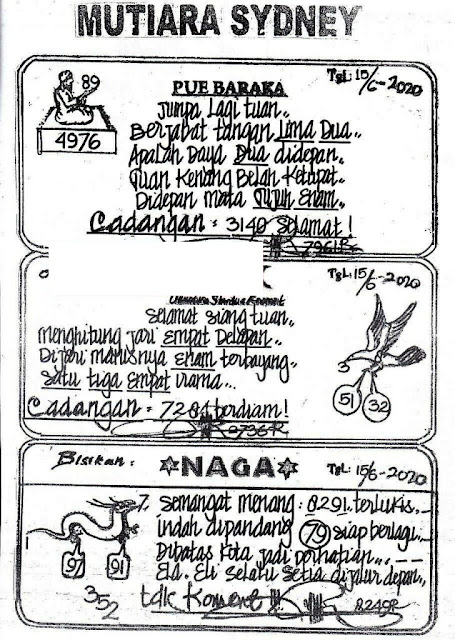 MUTIARA SYDNEY
Tgl: 15/6-2020
89
4976
PUE BARAKA
Jumpa Lagi tuan..
Berjabat tangan Lima Dua..
Apalah Daya Dua didepan..
Tuan Kenang Belah Ketupat..
Didepan mata Tujuh Enam..
Cadangan : 3140 Selamat !
7961R
Tgl: 15/6-2020
Selamat siang tuan..
menghitung jari empat Delapan..
Di jari manisnya enam terbayang..
Satu tiga empat irama...
Cadangan : 7284 terdiam!
0736R
3
51 32
Bisikan :
NAGA
Tgl: 15/6-2020
7. Semangat menang : 8291 terlukis...
indah dipandang 79 siap berlagu..
Dibatas Kota jadi perhatian...
Eld. Eli selalu setia dijalur depan..
tdk Koment !!!
8249R
97 91
352